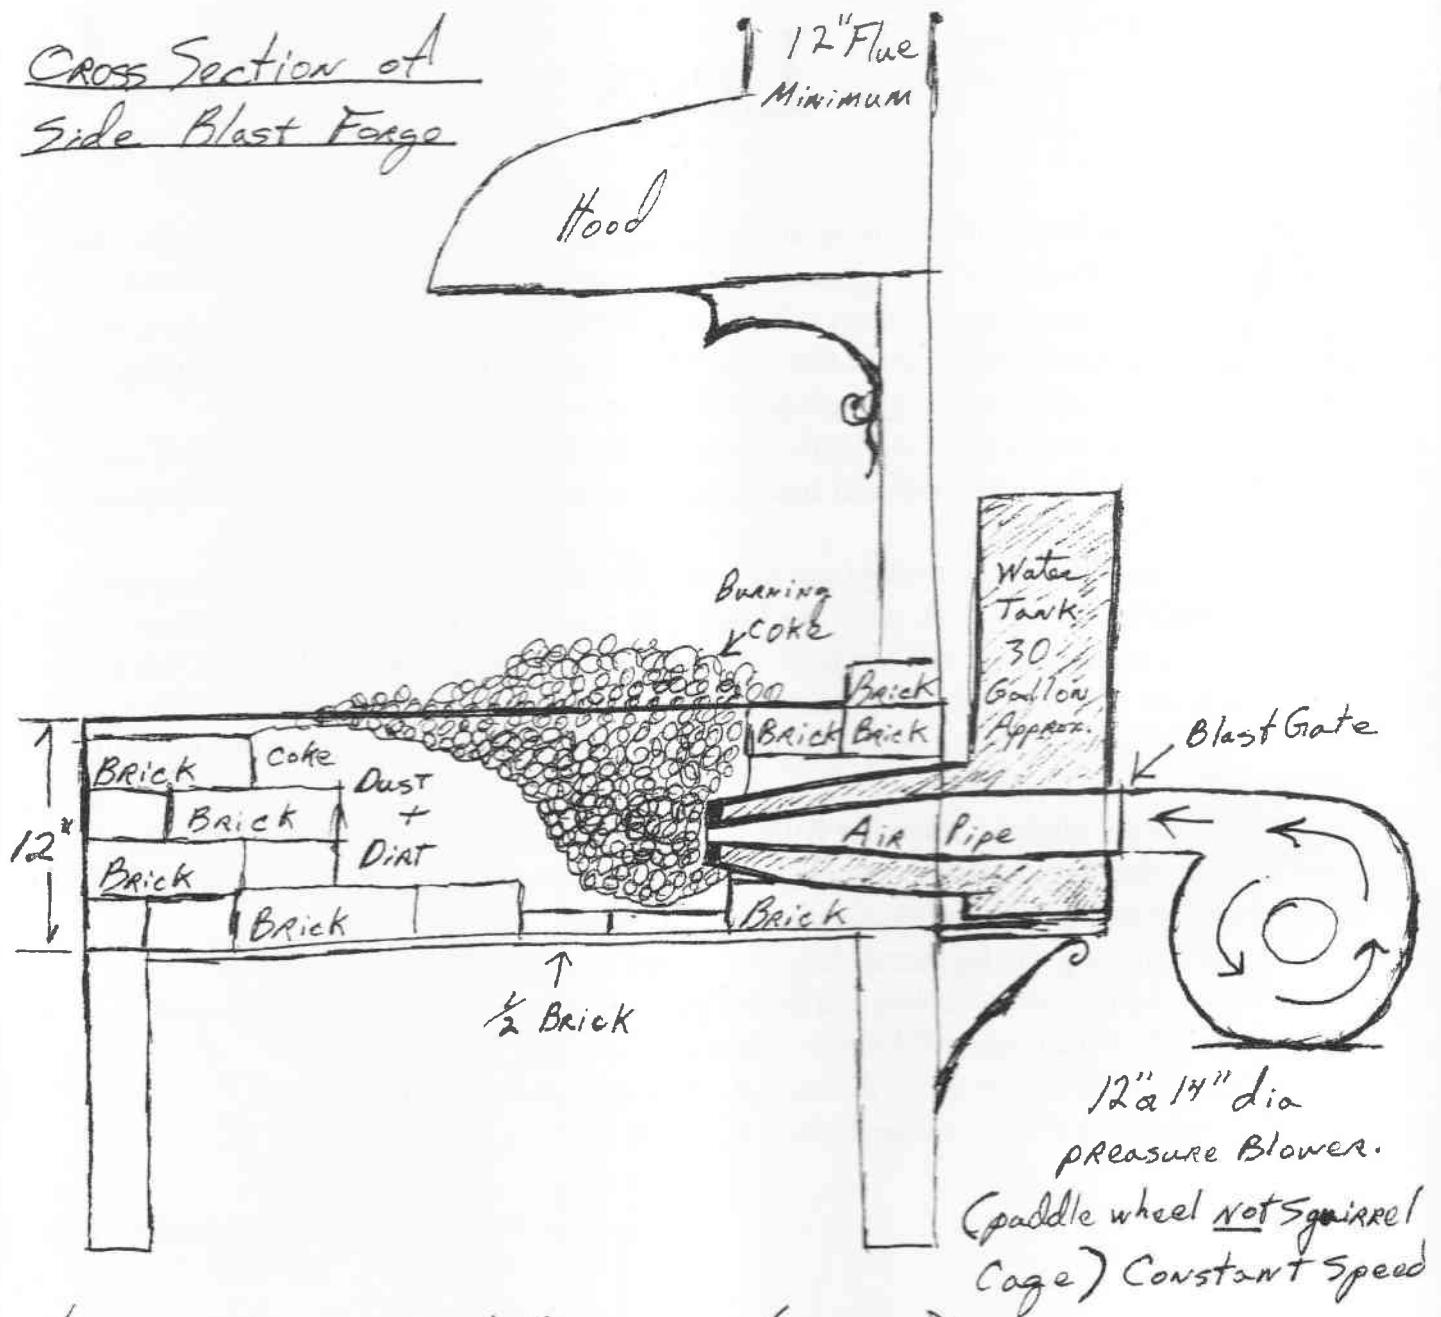 Cross Section of
Side Blast Forge
12" Flue
Minimum
Hood
Burning
Coke
Water
Tank
30
Gallon
Approx.
Brick
Brick
Brick
Blast Gate
Brick
Coke
Dust
+
Dirt
Brick
Air Pipe
12"
Brick
Brick
Brick
1/2 Brick
12" a 14" dia
preasure Blower.
(paddle wheel not Squirrel
Cage) Constant Speed